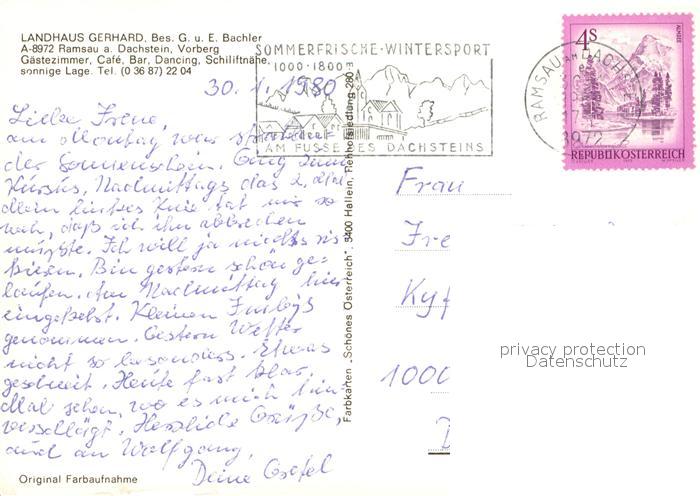 LANDHAUS GERHARD, Bes. G. u. E. Bachler
A-8972 Ramsau a. Dachstein, Vorberg
Gästezimmer, Café, Bar, Dancing, Schiliftnähe,
sonnige Lage. Tel. (0 36 87) 22 04
SOMMERFRISCHE · WINTERSPORT
1000-1800
AM FUSSE DES DACHSTEINS
RAMSAU AM DACH
8972
4S
ALMSEE
REPUBLIK ÖSTERREICH
30. 1. 1980
Liebe Irene,
am Montag war
der Sonnenschein. Ging zum
Kursus, Nachmittags das 2. Mal
Mein linkes Knie tat mir so
weh, daß ich ihn abbrechen
mußte. Ich will ja nichts ris
kieren. Bin gestern schon ge-
laufen. Am Nachmittag
genommen. Gestern Wetter
nicht so besonders. Etwas
geschneit. Heute fast klar.
Mal sehen, wo es mich hin
verschlägt. Herzliche Grüße,
auch an Wolfgang,
Deine
Frau
Fre
Kyf
1000
Farbkarten „Schönes Österreich", 5400 Hallein, Rehhofsiedlung 280
privacy protection
Datenschutz
Original Farbaufnahme